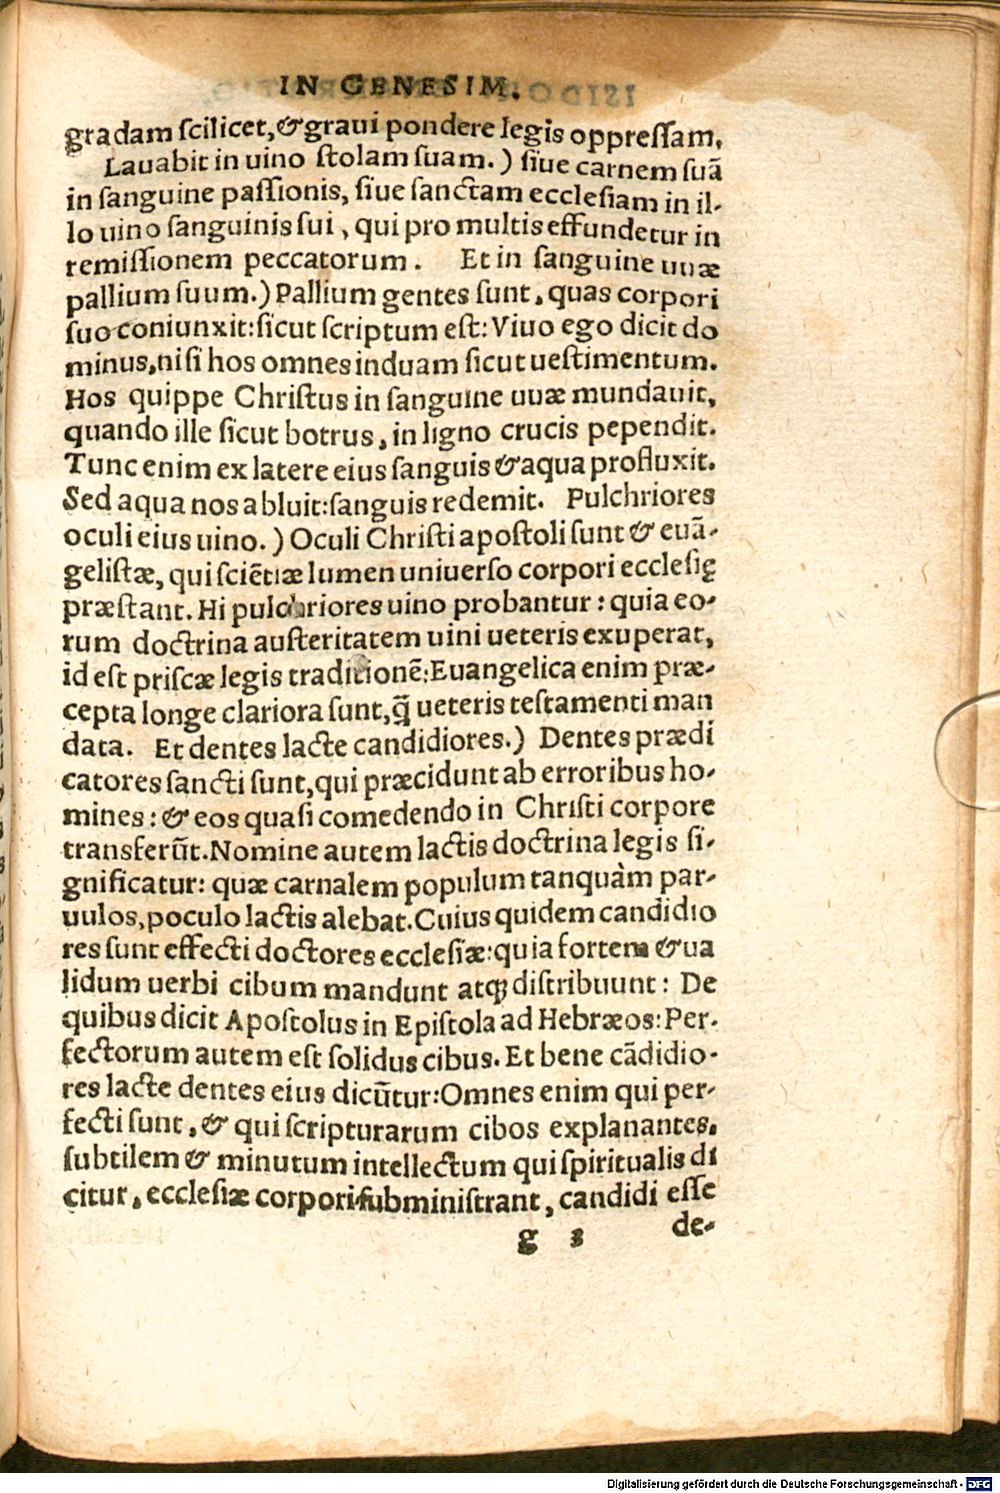 IN GENESIM.
gradam scilicet, & graui pondere legis oppressam.
Lauabit in uino stolam suam.) siue carnem suā
in sanguine passionis, siue sanctam ecclesiam in il-
lo uino sanguinis sui, qui pro multis effundetur in
remissionem peccatorum. Et in sanguine uuæ
pallium suum.) Pallium gentes sunt, quas corpori
suo coniunxit: sicut scriptum est: Viuo ego dicit do
minus, nisi hos omnes induam sicut uestimentum.
Hos quippe Christus in sanguine uuæ mundauit,
quando ille sicut botrus, in ligno crucis pependit.
Tunc enim ex latere eius sanguis & aqua profluxit.
Sed aqua nos abluit: sanguis redemit. Pulchriores
oculi eius uino.) Oculi Christi apostoli sunt & euā-
gelistæ, qui sciētiæ lumen uniuerso corpori ecclesię
præstant. Hi pulchriores uino probantur: quia eo-
rum doctrina austeritatem uini ueteris exuperat,
id est priscæ legis traditionē: Euangelica enim præ-
cepta longe clariora sunt, q̃ ueteris testamenti man
data. Et dentes lacte candidiores.) Dentes prædi
catores sancti sunt, qui præcidunt ab erroribus ho-
mines: & eos quasi comedendo in Christi corpore
transferūt. Nomine autem lactis doctrina legis si-
gnificatur: quæ carnalem populum tanquàm par-
uulos, poculo lactis alebat. Cuius quidem candidio
res sunt effecti doctores ecclesiæ: quia fortem & ua
lidum uerbi cibum mandunt atq; distribuunt: De
quibus dicit Apostolus in Epistola ad Hebræos: Per-
fectorum autem est solidus cibus. Et bene cādidio-
res lacte dentes eius dicūtur: Omnes enim qui per-
fecti sunt, & qui scripturarum cibos explanantes,
subtilem & minutum intellectum qui spiritualis di
citur, ecclesiæ corpori subministrant, candidi esse
g 3 de-
Digitalisierung gefördert durch die Deutsche Forschungsgemeinschaft - DFG